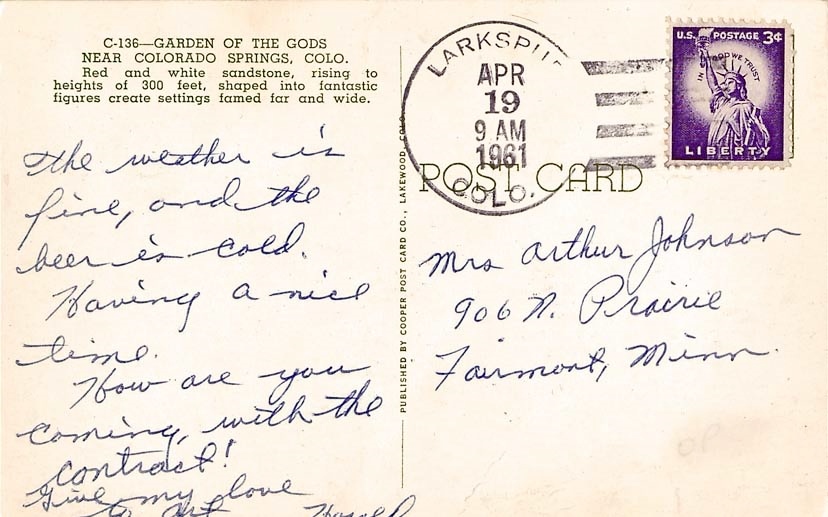 C-136—GARDEN OF THE GODS
NEAR COLORADO SPRINGS, COLO.
Red and white sandstone, rising to
heights of 300 feet, shaped into fantastic
figures create settings famed far and wide.
the weather is
fine, and the
beer is cold.
Having a nice
time.
How are you
coming, with the
contract!
Give my love
to Art
PUBLISHED BY COOPER POST CARD CO., LAKEWOOD, COLO.
LARKSPUR
APR
19
9 AM
1961
COLO.
U.S. POSTAGE 3¢
IN GOD WE TRUST
LIBERTY
POST CARD
Mrs Arthur Johnson
906 N. Prairie
Fairmont, Minn.